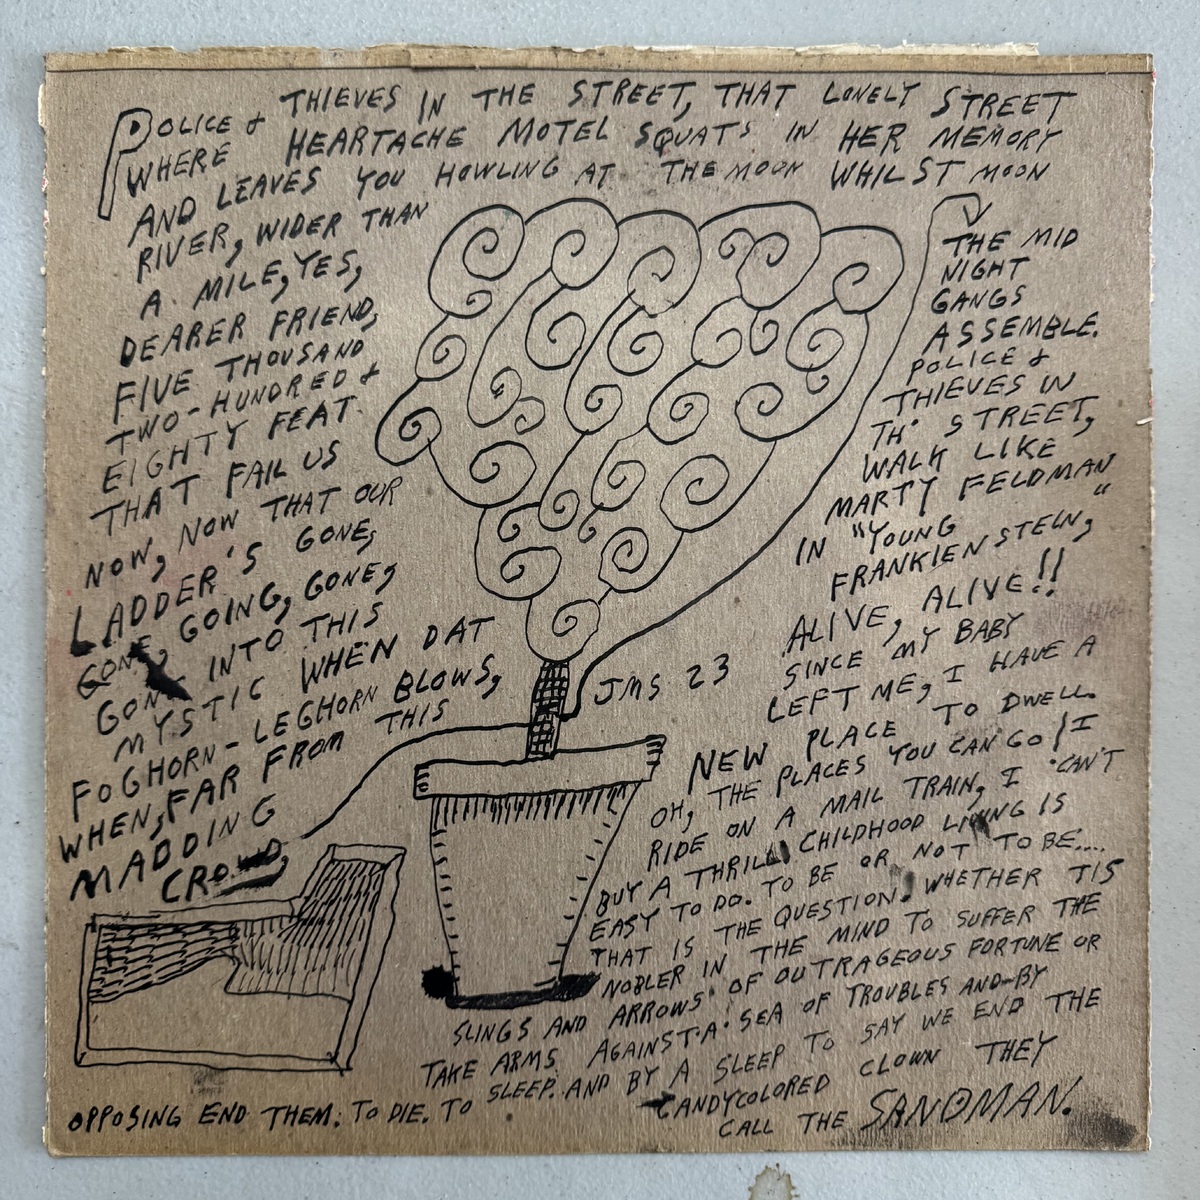 POLICE & THIEVES IN THE STREET, THAT LONELY STREET
WHERE HEARTACHE MOTEL SQUATS IN HER MEMORY
AND LEAVES YOU HOWLING AT THE MOON WHILST MOON
RIVER, WIDER THAN
A MILE, YES,
DEARER FRIEND,
FIVE THOUSAND
TWO-HUNDRED &
EIGHTY FEAT
THAT FAIL US
NOW, NOW THAT OUR
LADDER'S GONE,
GONE, GOING, GONE,
GONE INTO THIS
MYSTIC WHEN DAT
FOGHORN-LEGHORN BLOWS,
WHEN, FAR FROM THIS
MADDING
CROWD,
THE MID
NIGHT
GANGS
ASSEMBLE.
POLICE &
THIEVES IN
TH' STREET,
WALK LIKE
MARTY FELDMAN
IN "YOUNG
FRANKIENSTEIN,"
ALIVE, ALIVE!!
SINCE MY BABY
LEFT ME, I HAVE A
NEW PLACE TO DWELL.
OH, THE PLACES YOU CAN GO! I
RIDE ON A MAIL TRAIN, I CAN'T
BUY A THRILL CHILDHOOD LIVING IS
EASY TO DO. TO BE OR NOT TO BE....
THAT IS THE QUESTION, WHETHER TIS
NOBLER IN THE MIND TO SUFFER THE
SLINGS AND ARROWS OF OUTRAGEOUS FORTUNE OR
TAKE ARMS AGAINST A SEA OF TROUBLES AND BY
OPPOSING END THEM: TO DIE. TO SLEEP. AND BY A SLEEP TO SAY WE END THE
CANDYCOLORED CLOWN THEY
CALL THE SANDMAN.
JMS 23